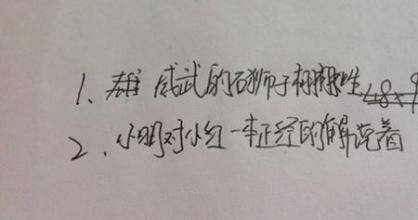 1、威武的石狮子栩栩如生
2、小明对小红一本正经的解说着